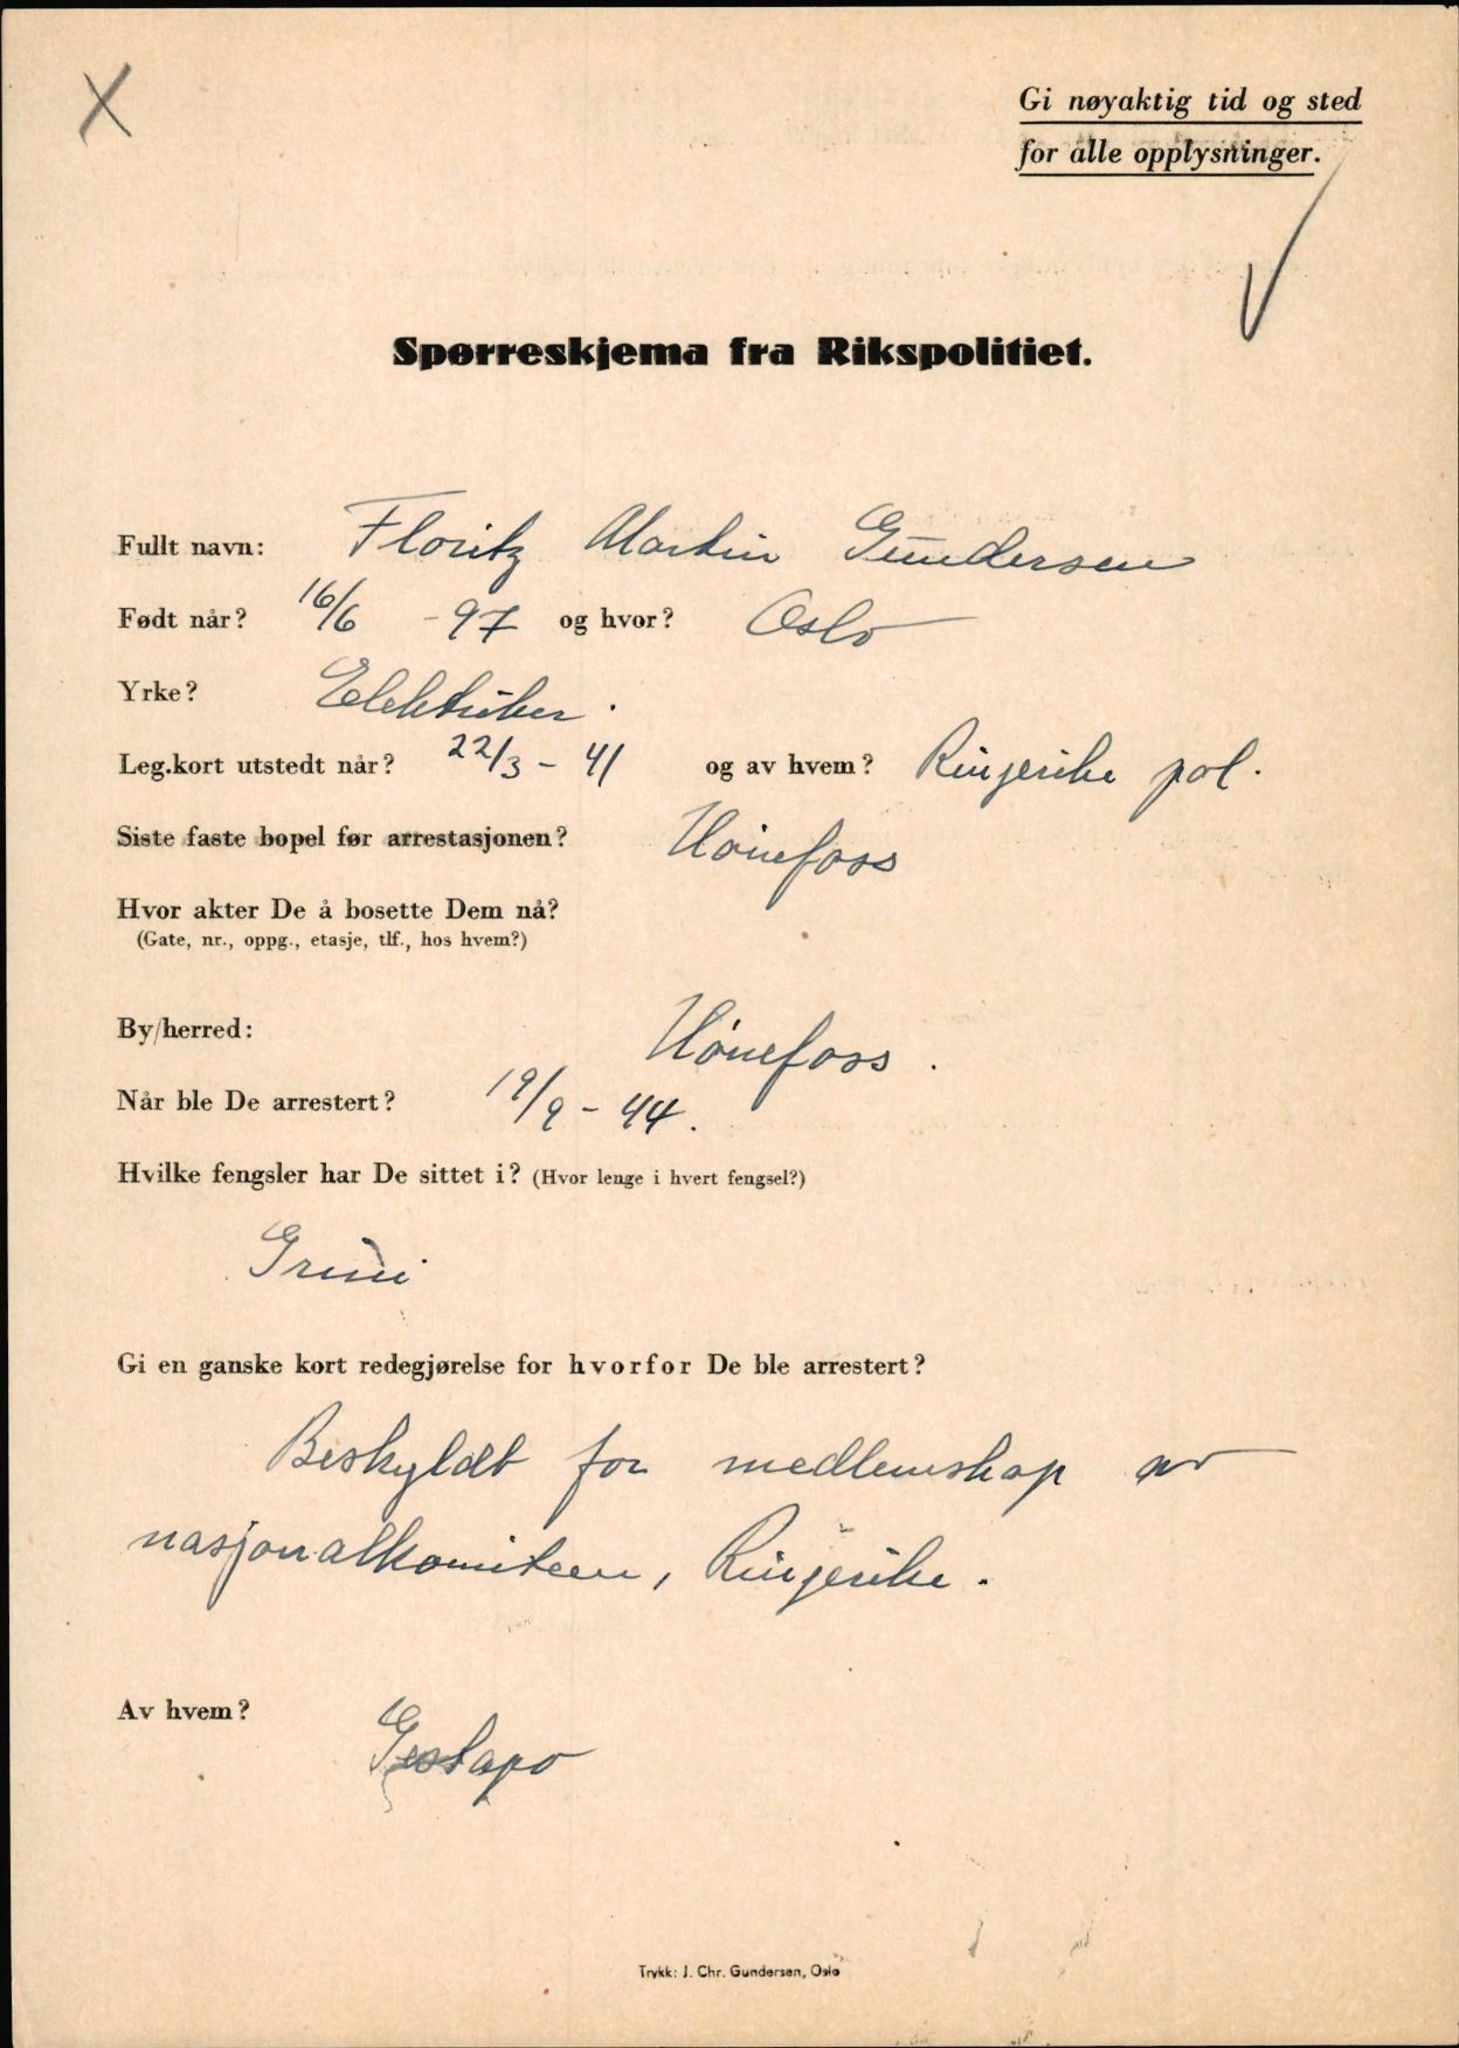 Gi nøyaktig tid og sted
for alle opplysninger.
Spørreskjema fra Rikspolitiet.
Fullt navn: Floritz Martin Gundersen
Født når? 16/6 - 97 og hvor? Oslo
Yrke? Elektriker.
Leg.kort utstedt når? 22/3 - 41 og av hvem? Ringerike pol.
Siste faste bopel før arrestasjonen? Hønefoss
Hvor akter De å bosette Dem nå?
(Gate, nr., oppg., etasje, tlf., hos hvem?)
By/herred: Hønefoss.
Når ble De arrestert? 19/9 - 44.
Hvilke fengsler har De sittet i? (Hvor lenge i hvert fengsel?)
Grini
Gi en ganske kort redegjørelse for hvorfor De ble arrestert?
Beskyldt for medlemskap av
nasjonalkomiteen, Ringerike.
Av hvem? Gestapo
Trykk: J. Chr. Gundersen, Oslo